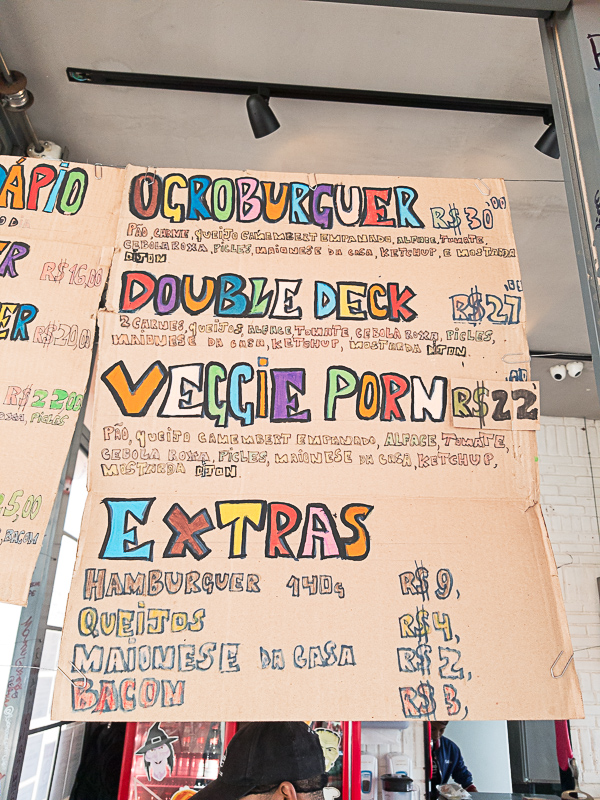 ÁPIO
R$16,00
ER
R$20,00
R$22,00
PICLES
5,00
BACON
OGROBURGUER R$30,00
PÃO, CARNE, QUEIJO CAMEMBERT EMPANADO, ALFACE, TOMATE,
CEBOLA ROXA, PICLES, MAIONESE DA CASA, KETCHUP, E MOSTARDA
DIJON
DOUBLE DECK R$27,00
2 CARNES, QUEIJOS, ALFACE TOMATE, CEBOLA ROXA, PICLES,
MAIONESE DA CASA, KETCHUP, MOSTARDA DIJON
VEGGIE PORN R$22
PÃO, QUEIJO CAMEMBERT EMPANADO, ALFACE, TOMATE,
CEBOLA ROXA, PICLES, MAIONESE DA CASA, KETCHUP,
MOSTARDA DIJON
EXTRAS
HAMBURGUER 140g R$9,
QUEIJOS R$4,
MAIONESE DA CASA R$2,
BACON R$3,